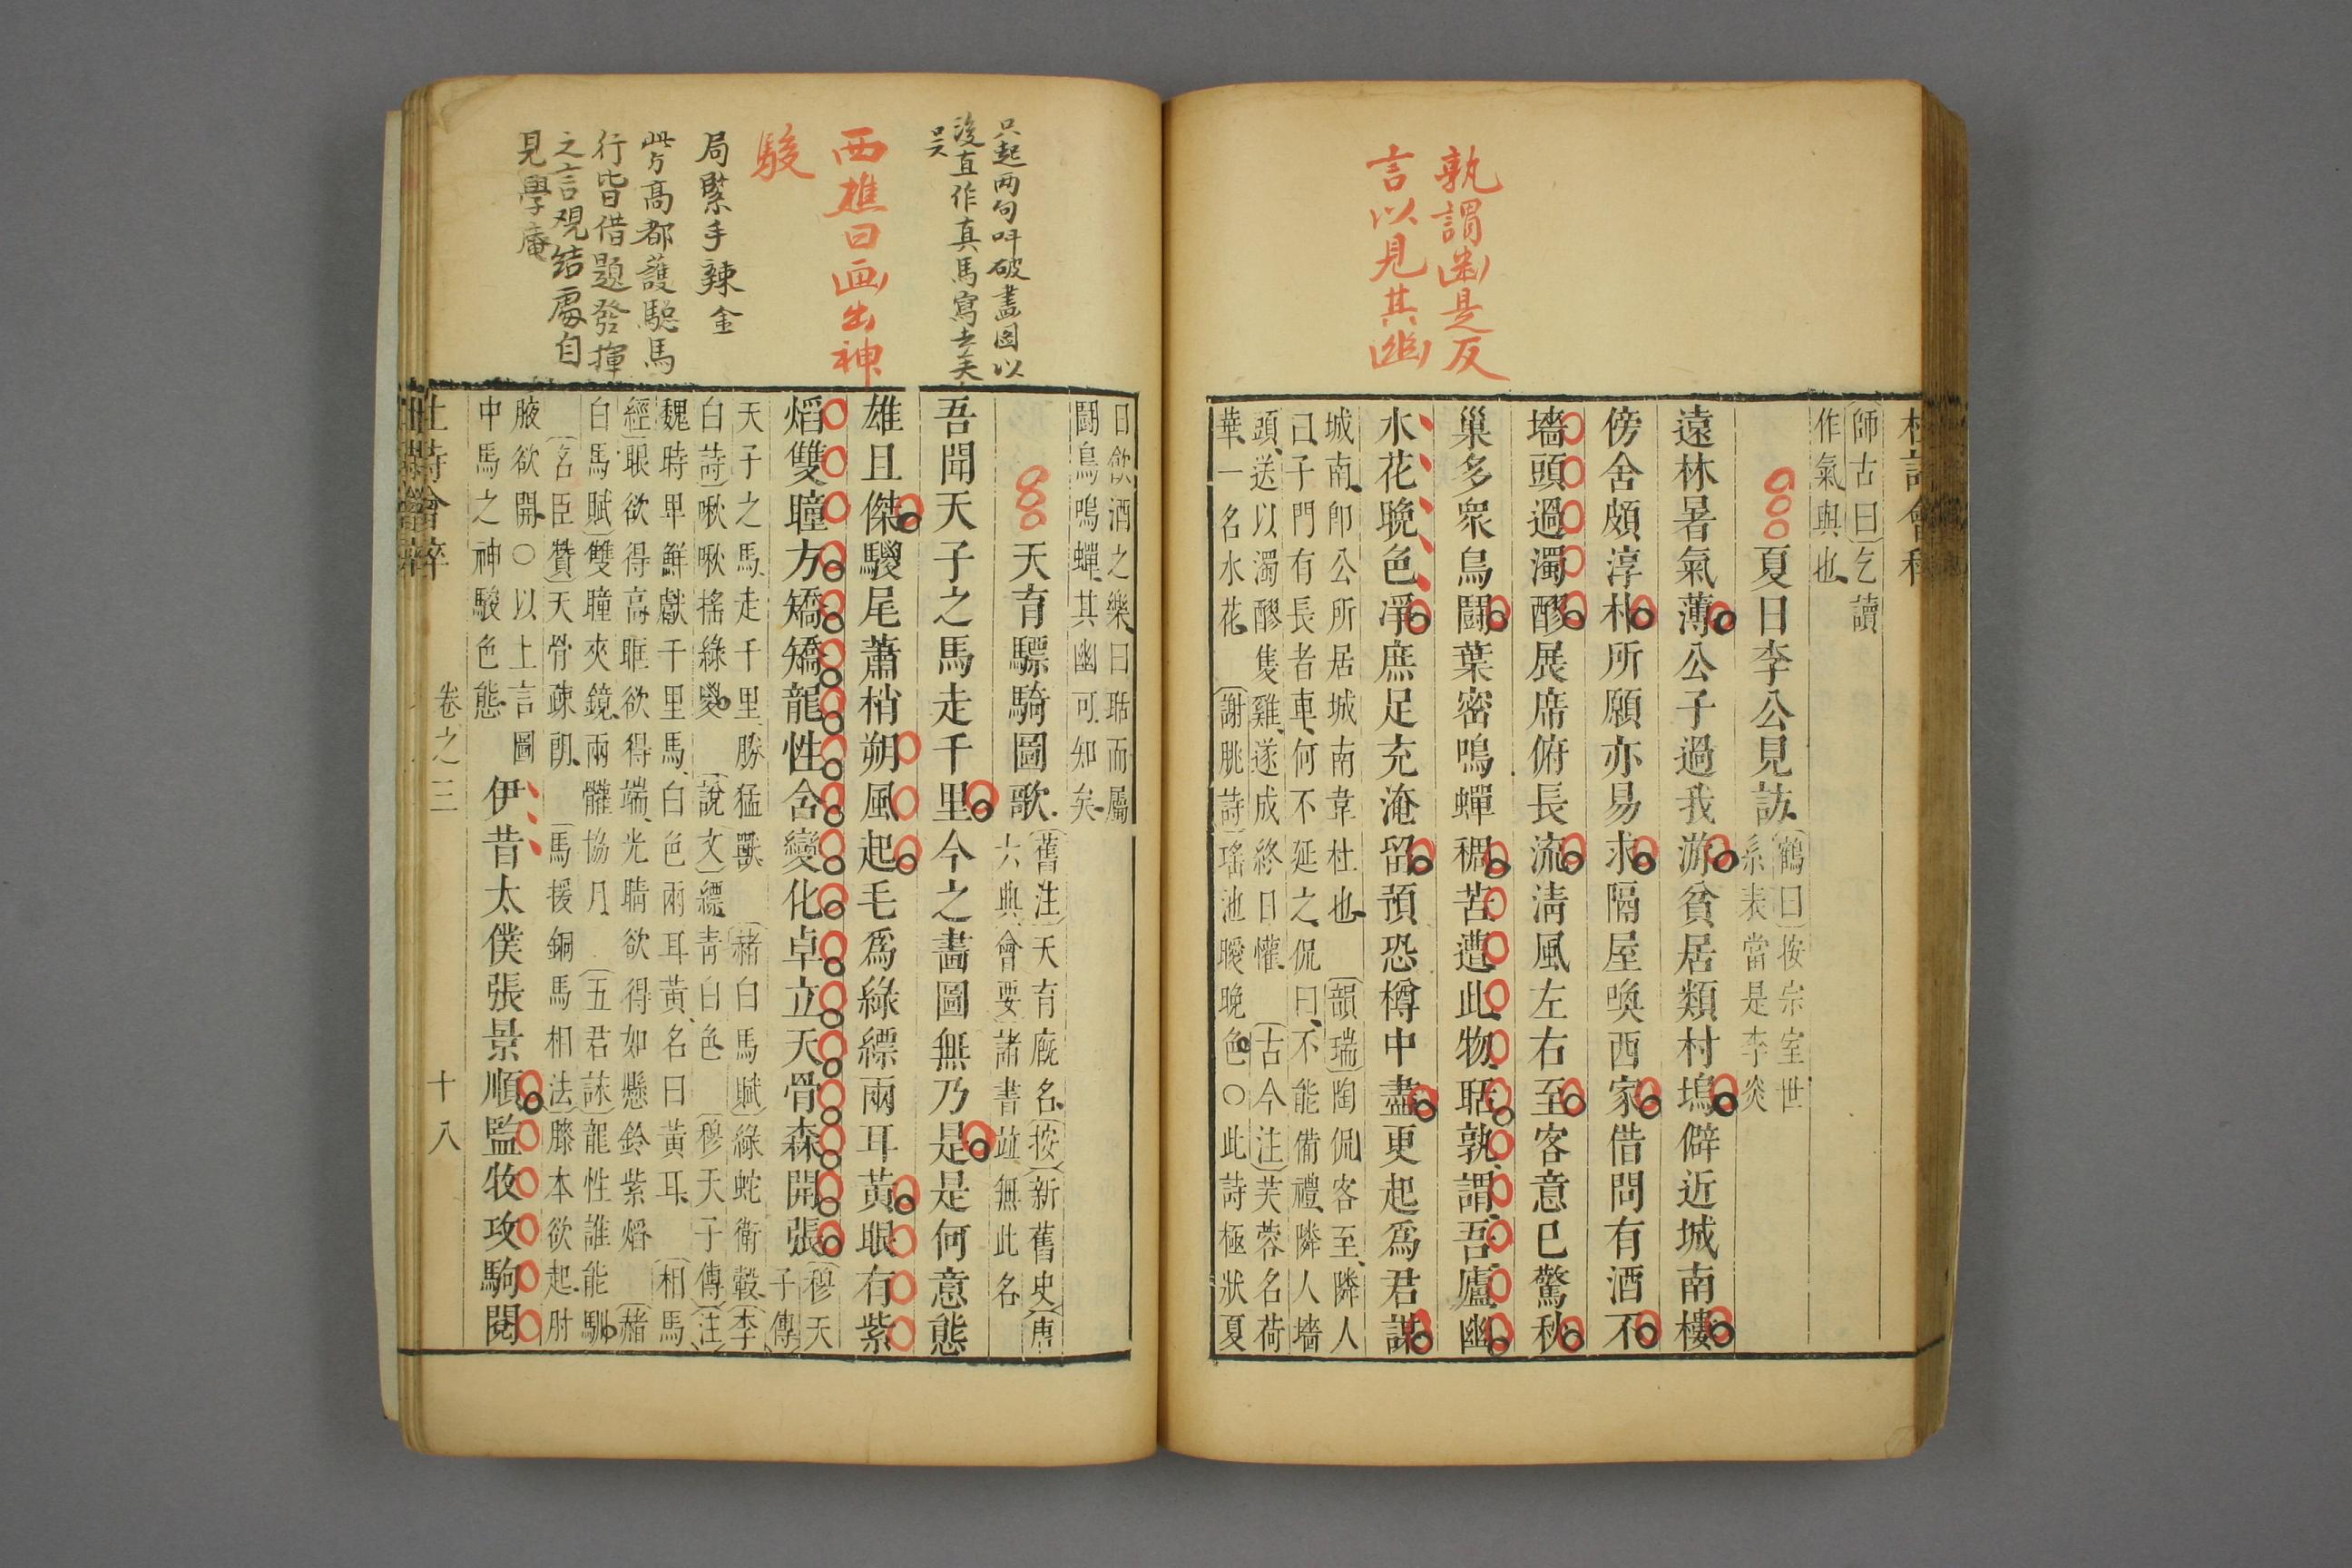 孰謂幽是反
言以見其幽
師古曰乞讀
作氣與也
夏日李公見訪
鶴曰按宗室世
系表當是李炎
遠林暑氣薄公子過我游貧居類村塢僻近城南樓
傍舍頗淳朴所願亦易求隔屋喚西家借問有酒不
墻頭過濁醪展席俯長流清風左右至客意已驚秋
巢多衆鳥鬪葉密鳴蟬稠苦遭此物聒孰謂吾廬幽
水花晚色凈庶足充淹留預恐樽中盡更起爲君謀
城南卽公所居城南韋杜也韻瑞陶侃客至隣人
曰子門有長者車何不延之侃曰不能備禮隣人墻
頭送以濁醪隻雞遂成終日懽古今注芙蓉名荷
華一名水花謝朓詩瑤池曖晚色○此詩極狀夏
日飲酒之樂曰聒而屬
鬪鳥鳴蟬其幽可知矣
只起两句呌破畫図以
後直作真馬寫去美
西樵曰画出神
駿
局緊手辣金
行皆借題發揮
之言观结處自
見學庵
天育驃騎圖歌
舊注天育廐名按新舊史唐
六典會要諸書竝無此名
吾聞天子之馬走千里今之畫圖無乃是是何意態
雄且傑騣尾蕭梢朔風起毛爲綠縹兩耳黃眼有紫
熖雙瞳方矯矯龍性含變化卓立天骨森開張
穆天
子傳
天子之馬走千里勝猛獸赭白馬賦綠蛇衛轂李
白詩啾啾搖綠騣說文縹青白色穆天子傳注
魏時卑鮮獻千里馬白色兩耳黃名曰黃耳相馬
經眼欲得高眶欲得端光睛欲得如懸鈴紫熖赭
白馬賦雙瞳夾鏡兩髖協月五君詠龍性誰能馴
名臣贊天骨疎朗馬援銅馬相法膝本欲起肘
腋欲開○以上言圖
中馬之神駿色態
伊昔太僕張景順監牧攻駒閱
卷之三
十八